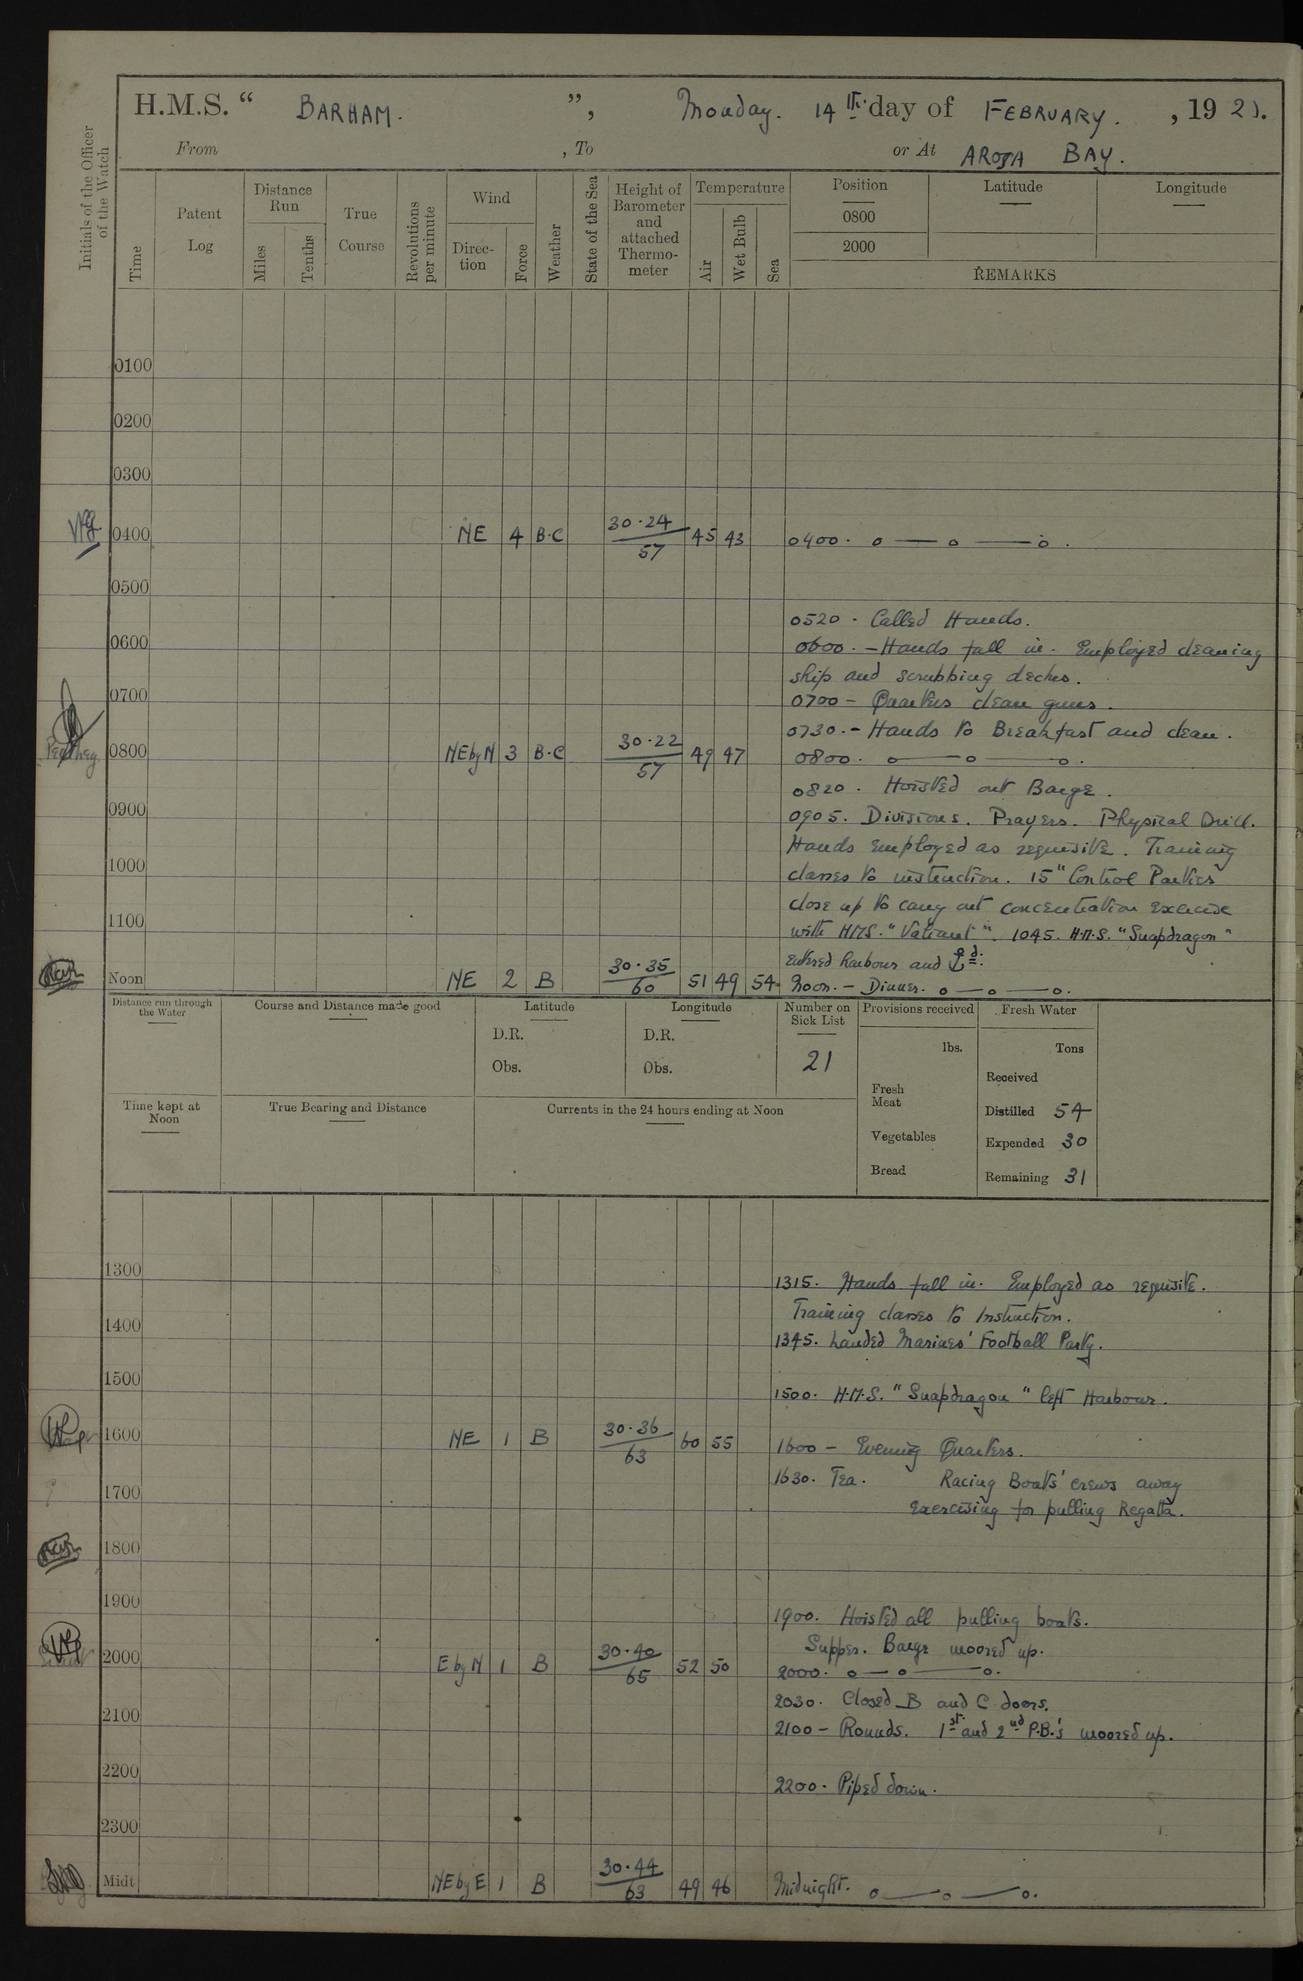 H.M.S. “ BARHAM. ”, Monday. 14th. day of FEBRUARY. , 1921.
From , To or At AROSA BAY.
Initials of the Officer of the Watch
Time
Patent Log
Distance Run
Miles
Tenths
True Course
Revolutions per minute
Wind
Direction
Force
Weather
State of the Sea
Height of Barometer and attached Thermometer
Temperature
Air
Wet Bulb
Sea
Position Latitude Longitude
0800
2000
REMARKS
0100
0200
0300
0400 NE 4 B.C 30.24 57 45 43 0400. o — o — o.
0500
0520. Called Hands.
0600 0600. - Hands fall in. Employed cleaning
ship and scrubbing decks.
0700 0700 - Quarters clean guns.
0730. - Hands to Breakfast and clean.
0800 NEbyN 3 B.C 30.22 57 49 47 0800. o — o — o.
0820. Hoisted out Barge.
0900 0905. Divisions. Prayers. Physical Drill.
Hands employed as requisite. Training
1000 classes to instruction. 15" Control Parties
close up to carry out concentration exercise
1100 with HMS. "Valiant". 1045. H.M.S. "Snapdragon"
entered harbour and ⚓d:
Noon NE 2 B 30.35 60 51 49 54 Noon. - Dinner. o — o — o.
Distance run through the Water
Course and Distance made good
Latitude
D.R.
Obs.
Longitude
D.R.
Obs.
Number on Sick List
21
Provisions received
lbs.
Fresh Meat
Vegetables
Bread
Fresh Water
Tons
Received
Distilled 54
Expended 30
Remaining 31
Time kept at Noon
True Bearing and Distance
Currents in the 24 hours ending at Noon
1300
1315. Hands fall in. Employed as requisite.
Training classes to Instruction.
1400 1345. Landed Marines' Football Party.
1500 1500. H.M.S. "Snapdragon" left Harbour.
1600 NE 1 B 30.36 63 60 55 1600 - Evening Quarters.
1630. Tea. Racing Boats' crews away
1700 exercising for pulling Regatta.
1800
1900 1900. Hoisted all pulling boats.
Supper. Barge moored up.
2000 EbyN 1 B 30.40 65 52 50 2000. o — o — o.
2030. Closed B and C doors.
2100 2100 - Rounds. 1st and 2nd P.B.'s moored up.
2200 2200. Piped down.
2300
Midt NEbyE 1 B 30.44 63 49 46 Midnight. o — o — o.